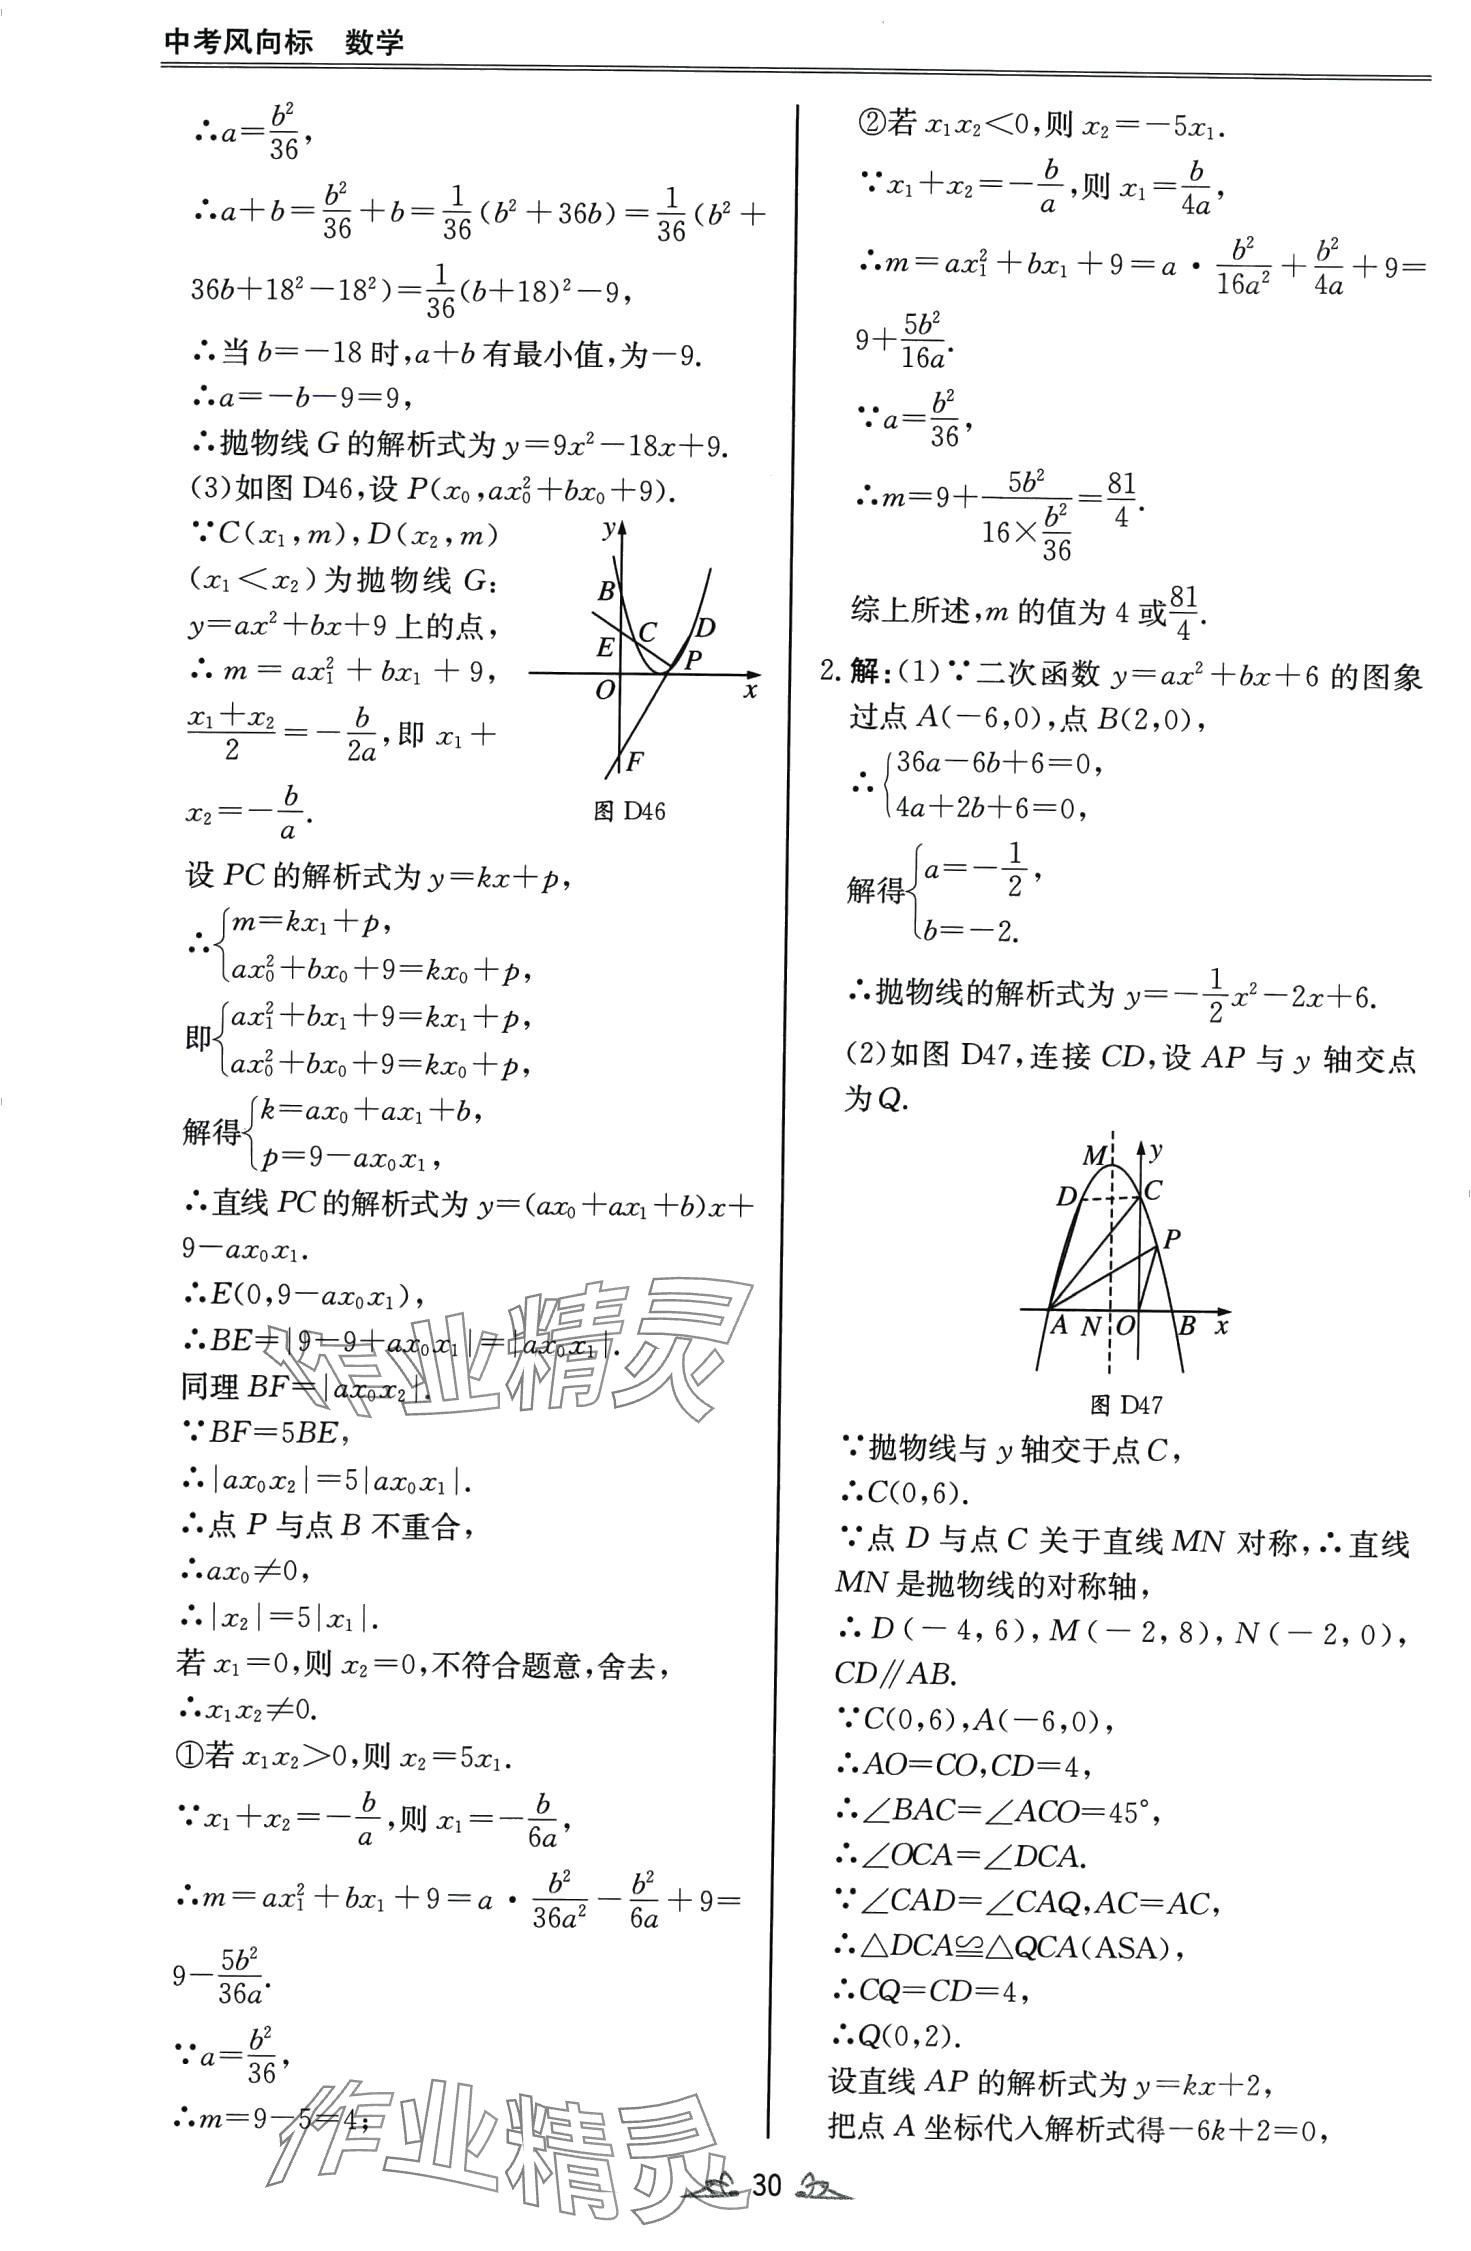 中考风向标　数学
∴a=b²/36,
∴a+b=b²/36+b=1/36(b²+36b)=1/36(b²+
36b+18²-18²)=1/36(b+18)²-9,
∴当b=-18时,a+b有最小值,为-9.
∴a=-b-9=9,
∴抛物线G的解析式为y=9x²-18x+9.
(3)如图D46,设P(x₀,ax₀²+bx₀+9).
∵C(x₁,m),D(x₂,m)
(x₁<x₂)为抛物线G:
y=ax²+bx+9上的点,
∴m=ax₁²+bx₁+9,
(x₁+x₂)/2=-b/2a,即x₁+
x₂=-b/a.
y
B
C
D
E
P
O
x
F
图 D46
设PC的解析式为y=kx+p,
∴{m=kx₁+p,
ax₀²+bx₀+9=kx₀+p,
即{ax₁²+bx₁+9=kx₁+p,
ax₀²+bx₀+9=kx₀+p,
解得{k=ax₀+ax₁+b,
p=9-ax₀x₁,
∴直线PC的解析式为y=(ax₀+ax₁+b)x+
9-ax₀x₁.
∴E(0,9-ax₀x₁),
∴BE=|9-9+ax₀x₁|=|ax₀x₁|.
同理BF=|ax₀x₂|.
∵BF=5BE,
∴|ax₀x₂|=5|ax₀x₁|.
∴点P与点B不重合,
∴ax₀≠0,
∴|x₂|=5|x₁|.
若x₁=0,则x₂=0,不符合题意,舍去,
∴x₁x₂≠0.
①若x₁x₂>0,则x₂=5x₁.
∵x₁+x₂=-b/a,则x₁=-b/6a,
∴m=ax₁²+bx₁+9=a·b²/36a²-b²/6a+9=
9-5b²/36a.
∵a=b²/36,
∴m=9-5=4;
②若x₁x₂<0,则x₂=-5x₁.
∵x₁+x₂=-b/a,则x₁=b/4a,
∴m=ax₁²+bx₁+9=a·b²/16a²+b²/4a+9=
9+5b²/16a.
∵a=b²/36,
∴m=9+5b²/(16×b²/36)=81/4.
综上所述,m的值为4或81/4.
2.解:(1)∵二次函数y=ax²+bx+6的图象
过点A(-6,0),点B(2,0),
∴{36a-6b+6=0,
4a+2b+6=0,
解得{a=-1/2,
b=-2.
∴抛物线的解析式为y=-1/2x²-2x+6.
(2)如图D47,连接CD,设AP与y轴交点
为Q.
M
y
D
C
P
A N O B x
图 D47
∵抛物线与y轴交于点C,
∴C(0,6).
∵点D与点C关于直线MN对称,∴直线
MN是抛物线的对称轴,
∴D(-4,6),M(-2,8),N(-2,0),
CD∥AB.
∵C(0,6),A(-6,0),
∴AO=CO,CD=4,
∴∠BAC=∠ACO=45°,
∴∠OCA=∠DCA.
∵∠CAD=∠CAQ,AC=AC,
∴△DCA≌△QCA(ASA),
∴CQ=CD=4,
∴Q(0,2).
设直线AP的解析式为y=kx+2,
把点A坐标代入解析式得-6k+2=0,
作业精灵
作业精灵
30